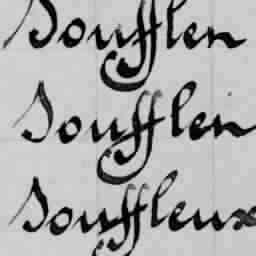 Soufflen
Souffleu
Souffleux